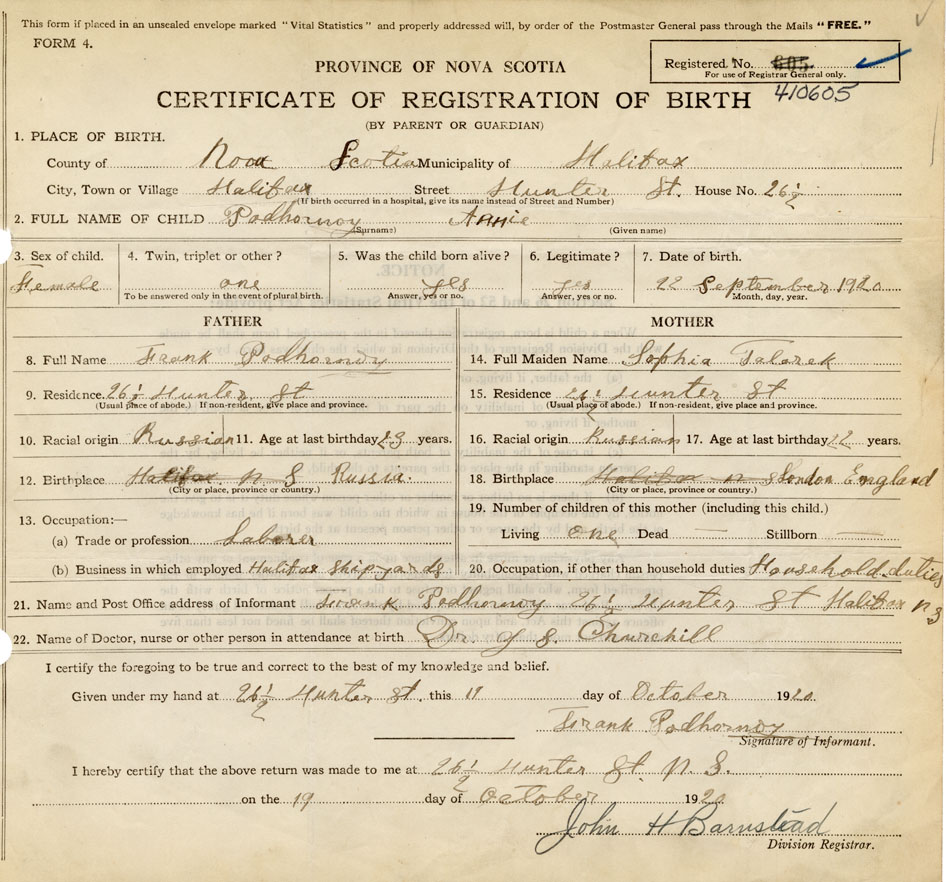 This form if placed in an unsealed envelope marked "Vital Statistics" and properly addressed will, by order of the Postmaster General pass through the Mails "FREE."
FORM 4.
Registered, No. 605.
For use of Registrar General only.
410605
PROVINCE OF NOVA SCOTIA
CERTIFICATE OF REGISTRATION OF BIRTH
(BY PARENT OR GUARDIAN)
1. PLACE OF BIRTH.
County of Nova Scotia Municipality of Halifax
City, Town or Village Halifax Street Hunter St. House No. 26½
(If birth occurred in a hospital, give its name instead of Street and Number)
2. FULL NAME OF CHILD Podhornoy Annie
(Surname) (Given name)
3. Sex of child. 4. Twin, triplet or other? 5. Was the child born alive? 6. Legitimate? 7. Date of birth.
Female one yes yes 22 September 1920
To be answered only in the event of plural birth. Answer, yes or no. Answer, yes or no. Month, day, year.
FATHER
8. Full Name Frank Podhornoy
9. Residence. 26½ Hunter St
(Usual place of abode.) If non-resident, give place and province.
10. Racial origin Russian 11. Age at last birthday 23 years.
12. Birthplace Halifax N S Russia.
(City or place, province or country.)
13. Occupation:—
(a) Trade or profession Laborer
(b) Business in which employed Halifax Shipyards
MOTHER
14. Full Maiden Name Sophia Talarek
15. Residence 26½ Hunter St
(Usual place of abode.) If non-resident, give place and province.
16. Racial origin Russian 17. Age at last birthday 22 years.
18. Birthplace Halifax N S London England
(City or place, province or country.)
19. Number of children of this mother (including this child.)
Living one Dead — Stillborn —
20. Occupation, if other than household duties Household duties
21. Name and Post Office address of Informant Frank Podhornoy 26½ Hunter St Halifax N S
22. Name of Doctor, nurse or other person in attendance at birth Dr. J. S. Churchill
I certify the foregoing to be true and correct to the best of my knowledge and belief.
Given under my hand at 26½ Hunter St. this 19 day of October 1920.
Frank Podhornoy
Signature of Informant.
I hereby certify that the above return was made to me at 26½ Hunter St. N. S.
on the 19 day of October 1920
John H Barnstead
Division Registrar.